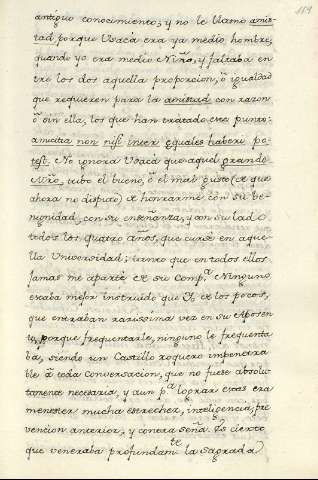 119
antiguo conocimiento; y no le llamo amis-
tad, porque Usacà era ya medio hombre,
quando yo era medio Niño, y faltaba en
tre los dos aquella proporcion, ò igualdad
que requieren para la amistad con razon
ò sin ella, los que han tratado este punto:
amicitia non nisi inter æquales haberi po-
test. No ignora Usacà que aquel grande
Niño, tubo el bueno, ò el mal gusto (de que
ahora no disputo) de honrarme con su be-
nignidad, con su enseñanza, y con su lado
todos los quatro años, que cursè en aque-
lla Universidad; tanto que en todos ellos
jamas me apartè de su Compª. Ninguno
estaba mejor instruido que Yo, de los pocos,
que entraban rarissima vez en su Aposen
to, porque frequentarle, ninguno le frequenta
ba, siendo un Castillo roquero impenetra
ble à toda conversacion, que no fuese absolu-
tamente necesaria, y aun pª lograr esta era
menester mucha estrechez, inteligencia, pre
vencion anterior, y contra seña. Es cierto
que veneraba profundamte la sagrada